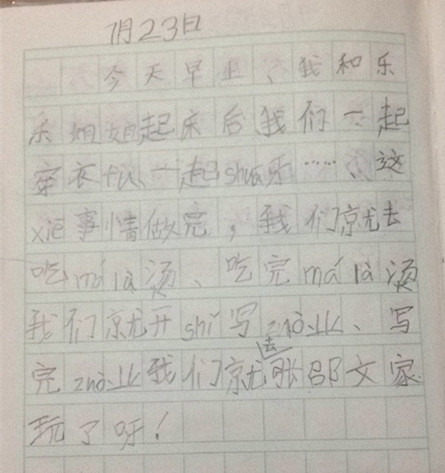 1月23日
今天早上、我和乐
乐姐姐起床后我们一起
穿衣fu、一起shua牙……、这
xie事情做完，我们就去
吃má là烫、吃完má là烫
我们就开shǐ写zuò业、写
完zuò业我们就去张邵文家
玩了呀！